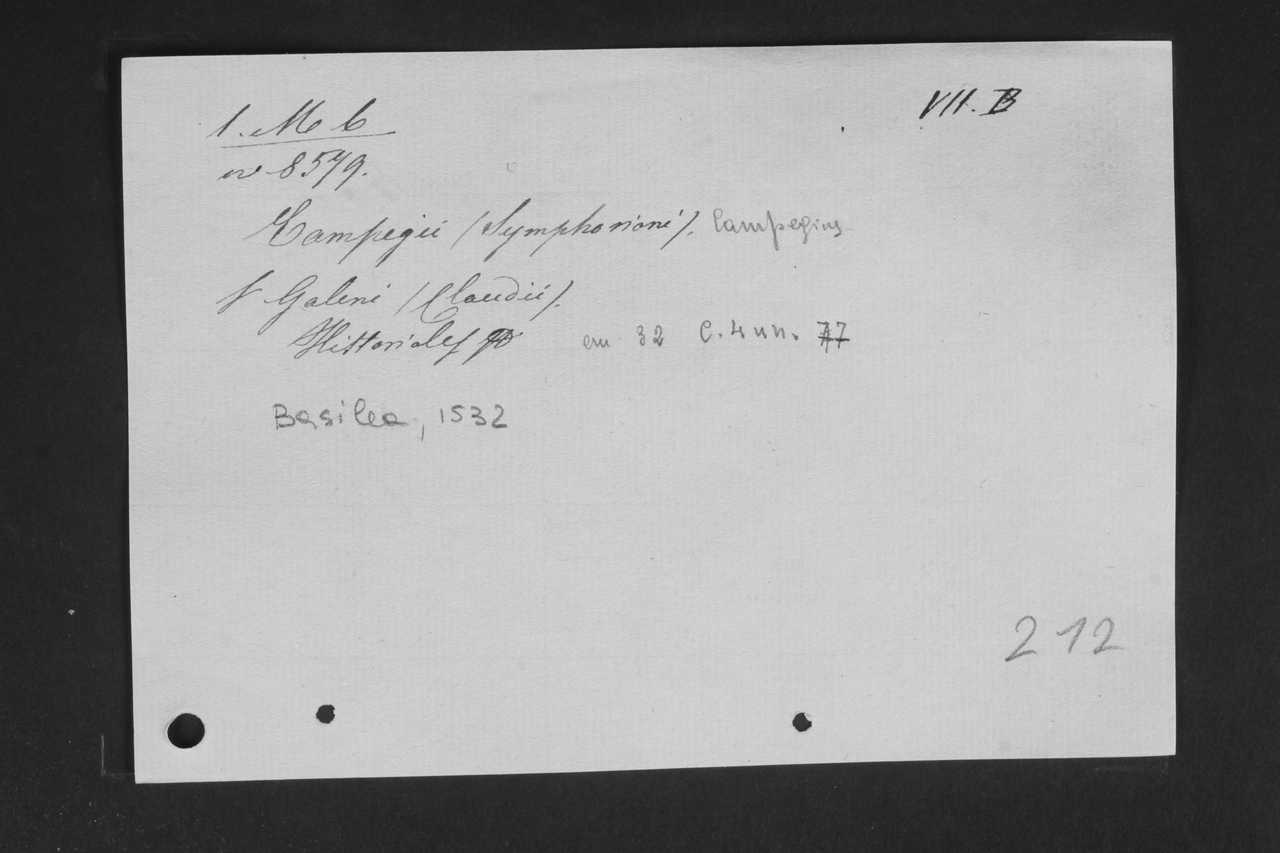 VII. B
1. M b
8579.
Campegii (Symphoriani). Campegius
Galeni (Claudii).
Historiales 32 C. 4 nn. 77
Basilea, 1532
212